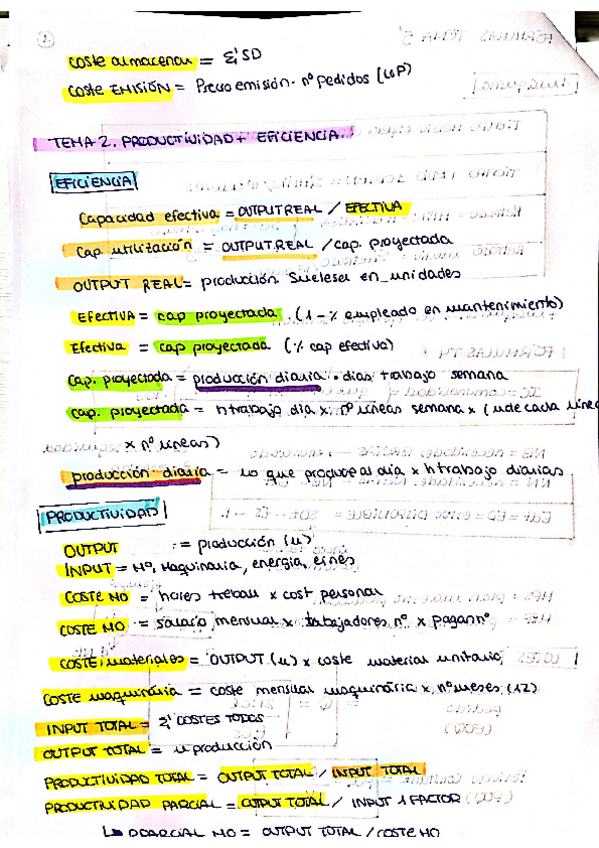 coste almacenar = Σ SD
coste EMISIÓN = Precio emisión · nº pedidos (LSP)
TEMA 2. PRODUCTIVIDAD + EFICIENCIA.
EFICIENCIA
Capacidad efectiva = OUTPUT REAL / EFECTIVA
Cap. utilización = OUTPUT REAL / cap. proyectada
OUTPUT REAL = producción. Suele ser en unidades
EFECTIVA = cap proyectada . (1 - % empleado en mantenimiento)
Efectiva = cap proyectada (% cap efectiva)
Cap. proyectada = producción diaria · dias trabajo semana
cap. proyectada = h trabajo dia x nº lineas semana x (u de cada linea
x nº lineas)
producción diaria = lo que produce al dia x h trabajo diarias
PRODUCTIVIDAD
OUTPUT = producción (u)
INPUT = Mº, Maquinaria, energia,
COSTE MO = horas trebau x cost personal
COSTE MO = salario mensual x trabajadores nº x pagas nº
COSTE materiales = OUTPUT (u) x coste material unitario
COSTE maquinaria = coste mensual maquinaria x nº meses (12)
INPUT TOTAL = Σ COSTES TODOS
OUTPUT TOTAL = u producción
PRODUCTIVIDAD TOTAL = OUTPUT TOTAL / INPUT TOTAL
PRODUCTIVIDAD PARCIAL = OUTPUT TOTAL / INPUT 1 FACTOR
↳ PPARCIAL MO = OUTPUT TOTAL / COSTE MO